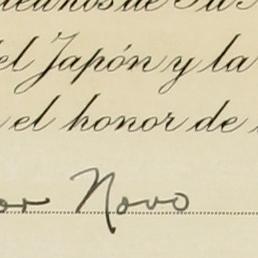 el Japón y la
el honor de
Novo